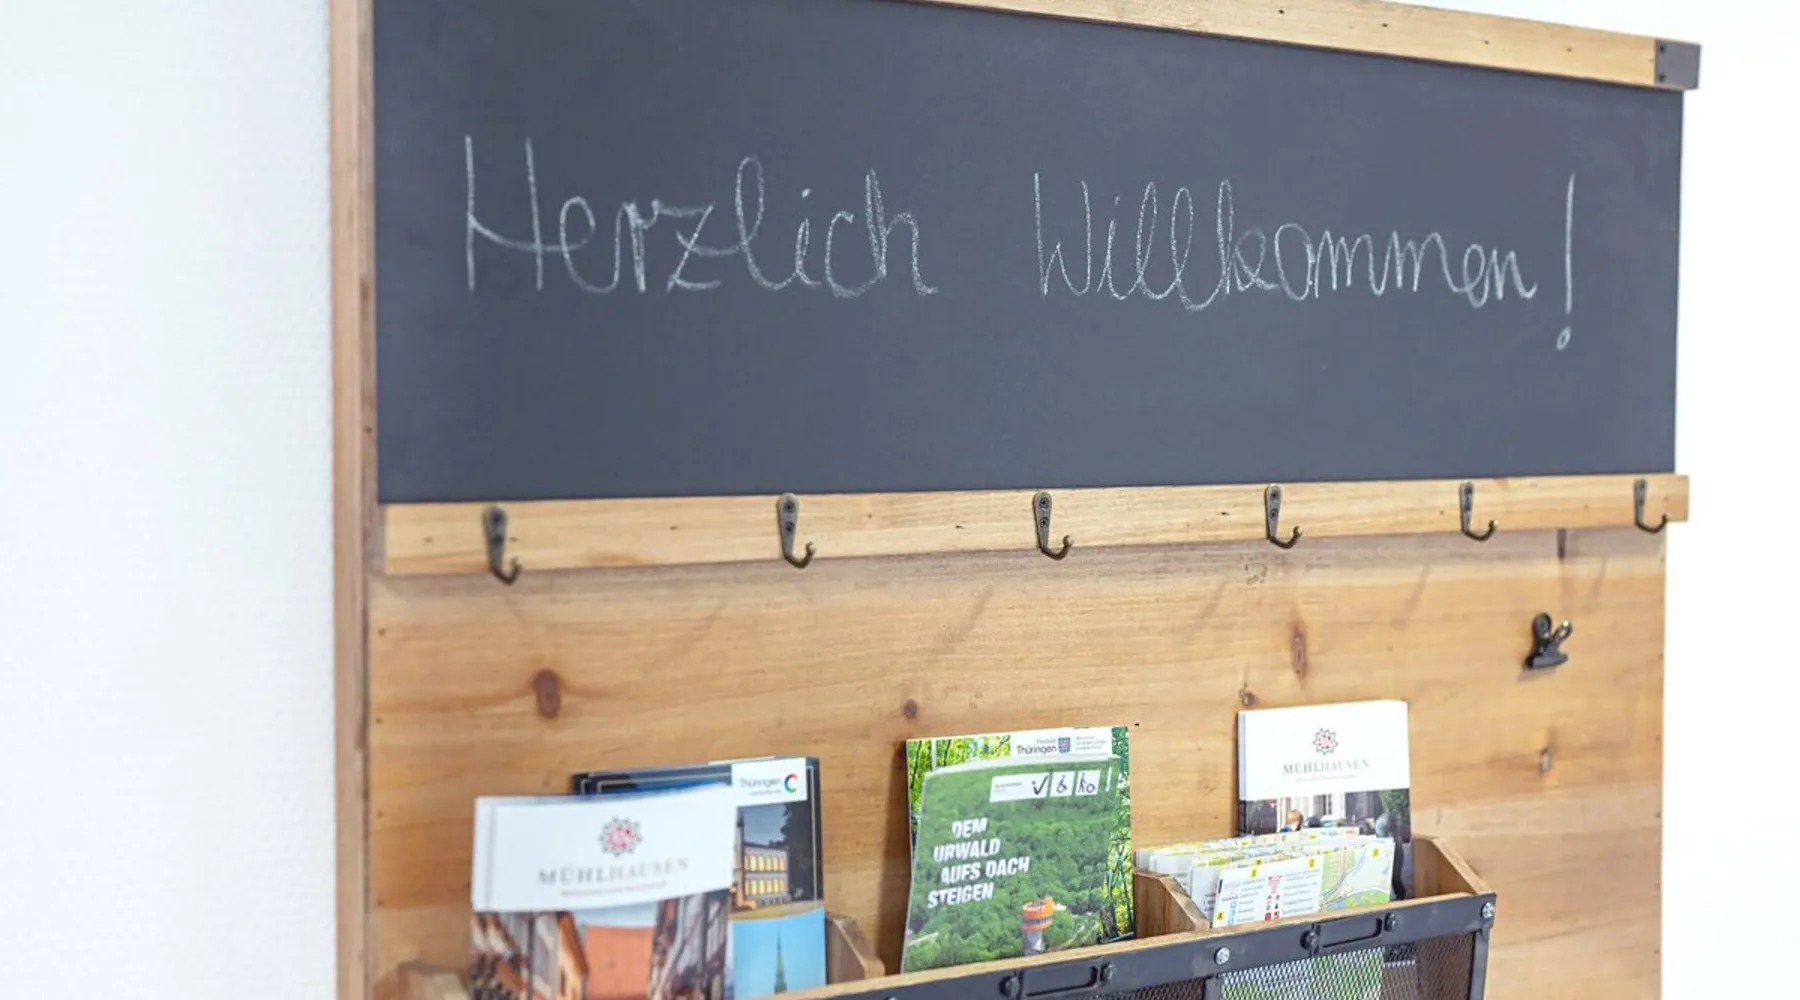 Herzlich Willkommen!
Thüringen
MÜHLHAUSEN
Thüringen
DEM
URWALD
AUFS DACH
STEIGEN
MÜHLHAUSEN